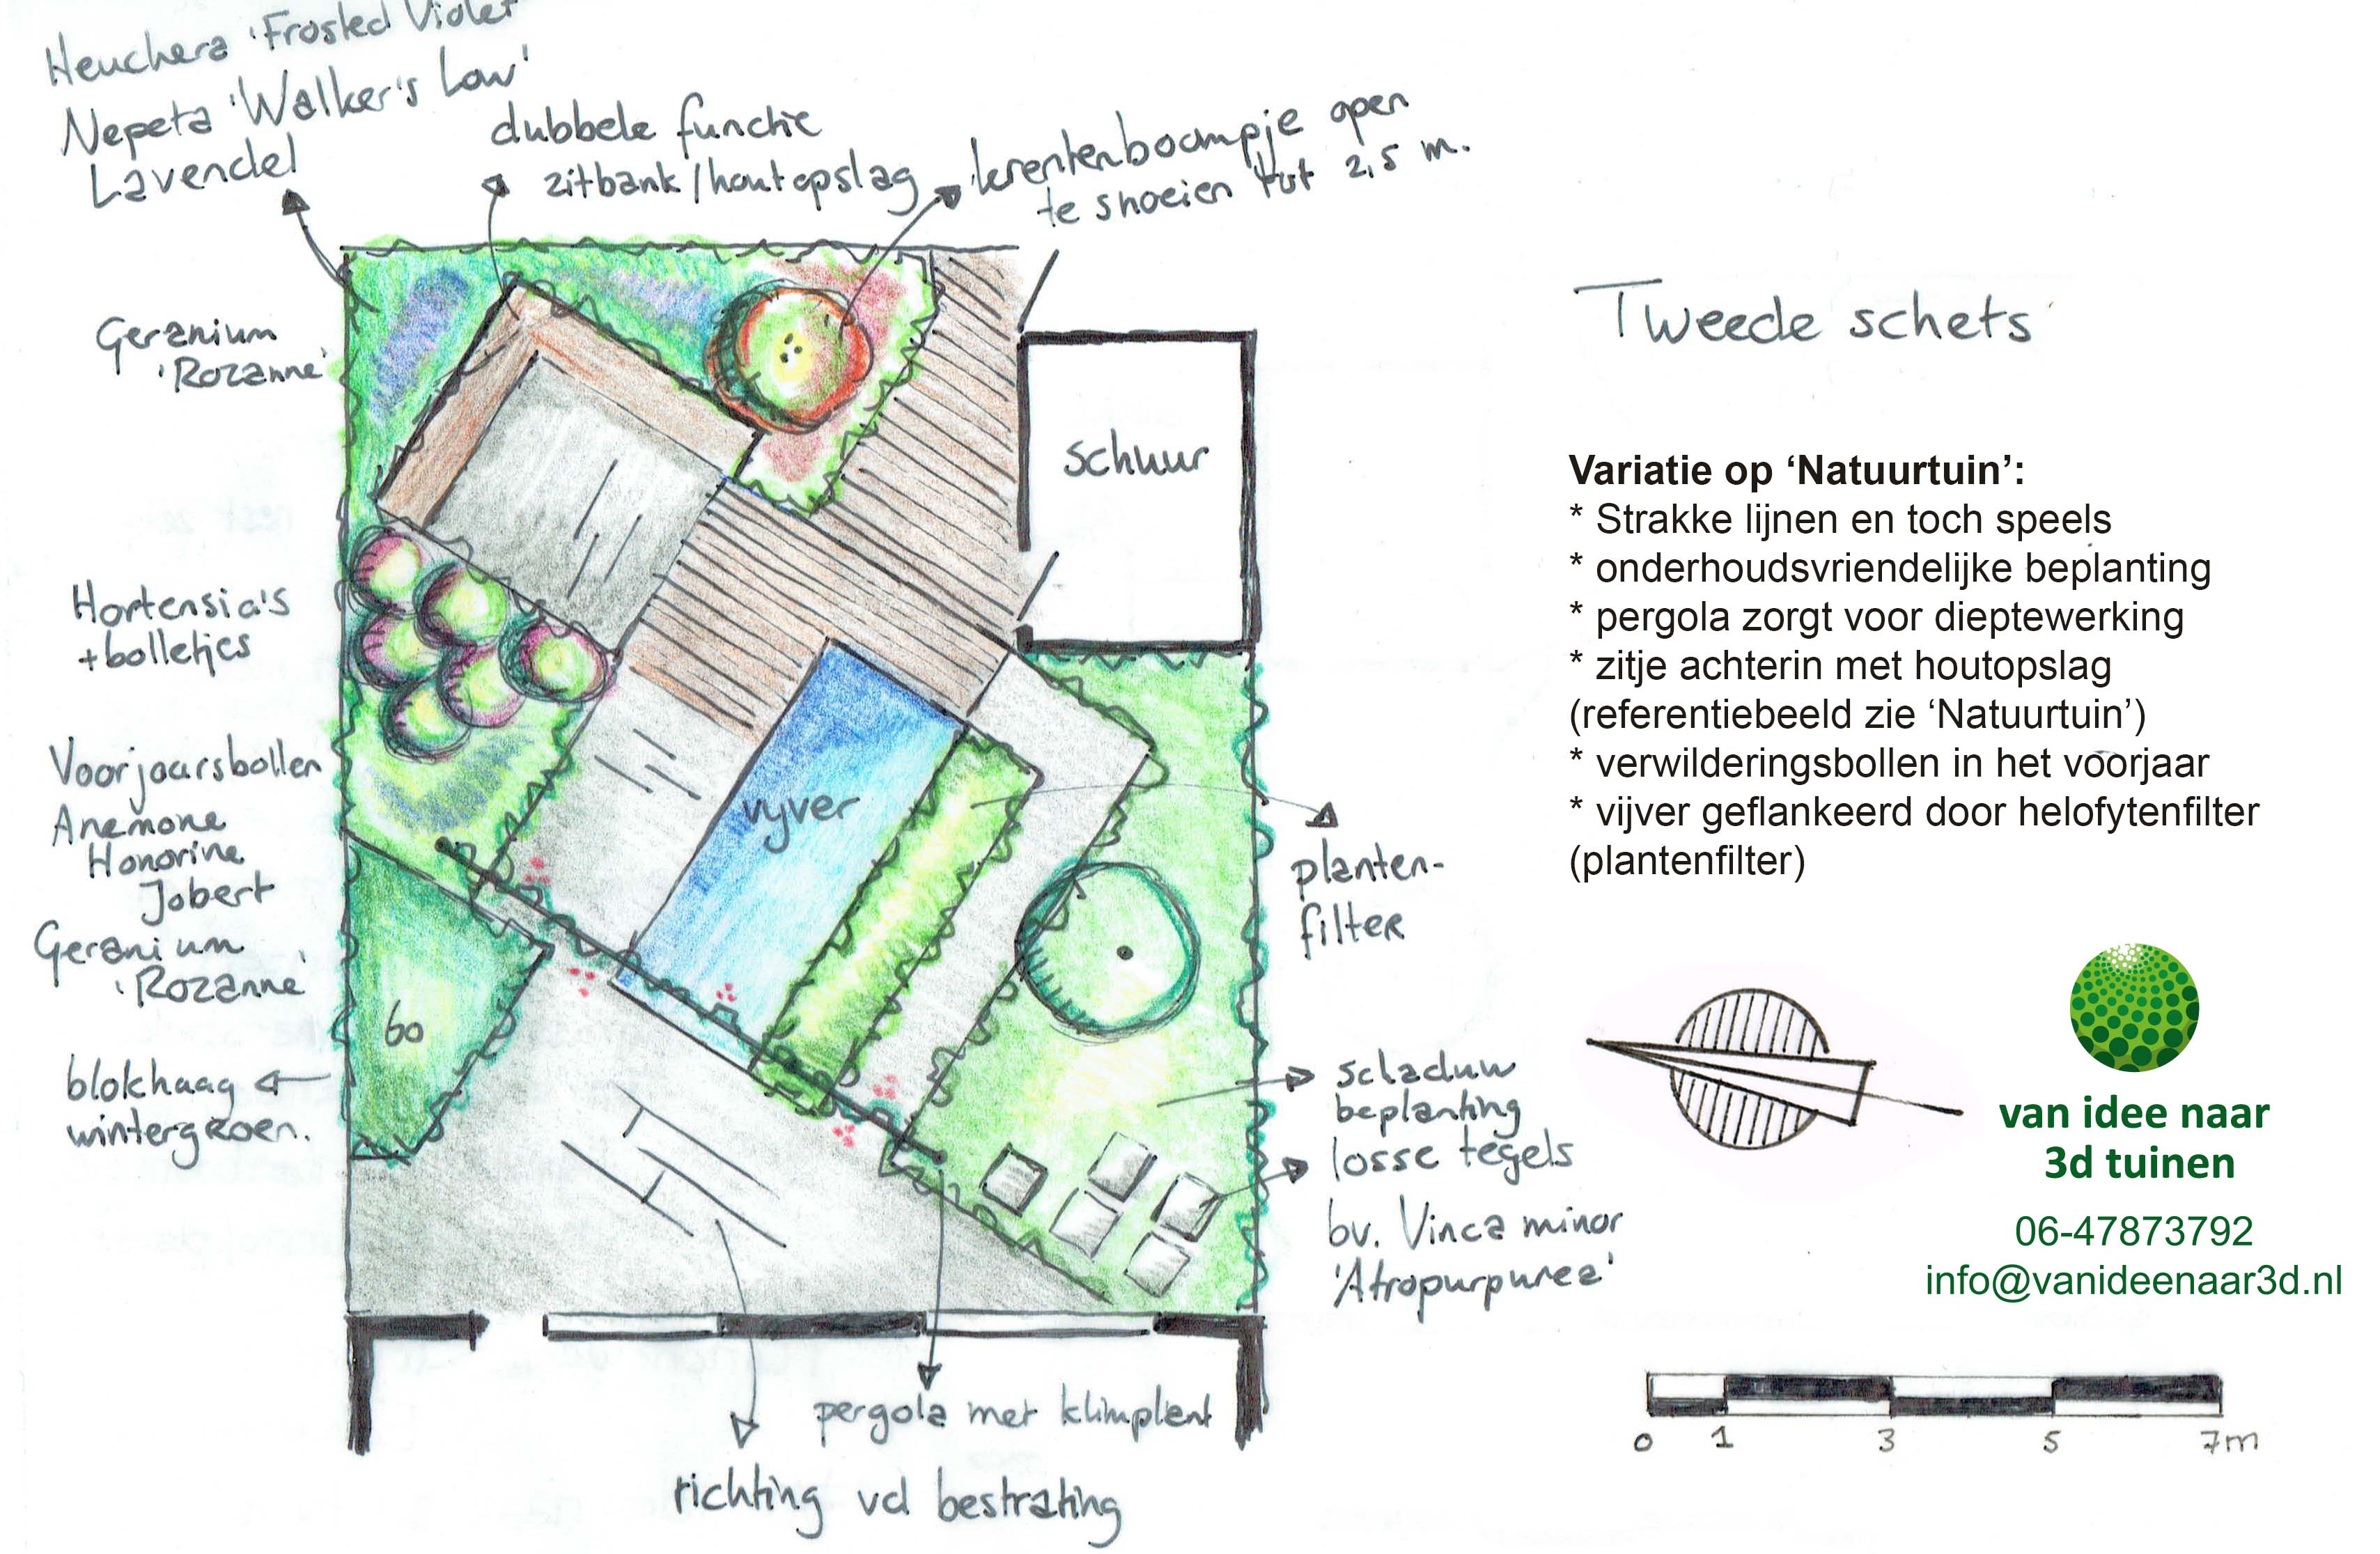 Heuchera 'Frosted Violet'
Nepeta 'Walker's Low'
Lavendel
dubbele functie
zitbank/houtopslag
krentenboompje open
te snoeien tot 2,5 m.
Geranium
'Rozanne'
Hortensia's
+bolletjes
Voorjaarsbollen
Anemone
Honorine
Jobert
Geranium
'Rozanne'
blokhaag
wintergroen.
schuur
vyver
60
planten-
filter
schaduw
beplanting
losse tegels
bv. Vinca minor
'Atropurpurea'
pergola met klimplant
richting vd bestrating
Tweede schets
Variatie op ‘Natuurtuin’:
* Strakke lijnen en toch speels
* onderhoudsvriendelijke beplanting
* pergola zorgt voor dieptewerking
* zitje achterin met houtopslag
(referentiebeeld zie ‘Natuurtuin’)
* verwilderingsbollen in het voorjaar
* vijver geflankeerd door helofytenfilter
(plantenfilter)
van idee naar
3d tuinen
06-47873792
info@vanideenaar3d.nl
0 1 3 5 7m